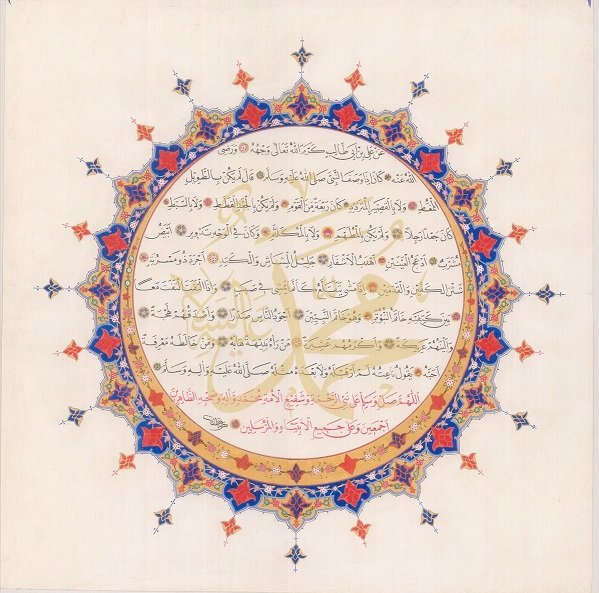 عن علي بن أبي طالب كرم الله تعالى وجهه ورضي
الله عنه كان اذا وصف النبي صلى الله عليه وسلم قال لم يكن بالطويل
الممغط ولا بالقصير المتردد وكان ربعة من القوم ولم يكن بالجعد القطط ولا بالسبط
كان جعدا رجلا ولم يكن بالمطهم ولا بالمكلثم وكان في الوجه تدوير ابيض
مشرب ادعج العينين اهدب الاشفار جليل المشاش والكتد اجرد ذو مسربة
شثن الكفين والقدمين اذا مشى تقلع كأنما يمشي في صبب واذا التفت التفت معا
بين كتفيه خاتم النبوة وهو خاتم النبيين اجود الناس صدرا لهجة
والينهم عريكة واكرمهم عشرة من رآه بديهة هابه ومن خالطه معرفة
احبه يقول ناعته لم ار قبله ولا بعده مثله صلى الله عليه واله وسلم
اللهم صل وسلم على نبي الرحمة وشفيع الامة محمد وآله وصحبه الطاهرين
اجمعين وعلى جميع الانبياء والمرسلين
محمد عليه السلام